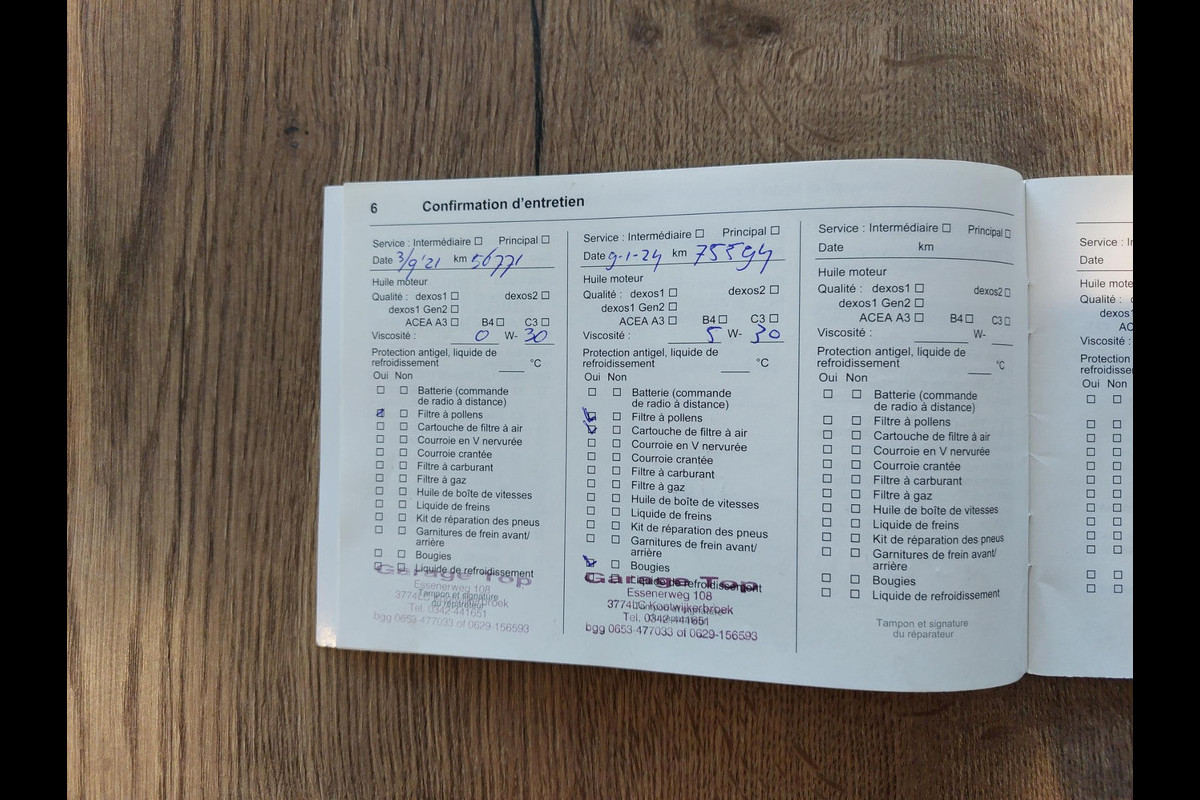 6 Confirmation d'entretien
Service : Intermédiaire Principal
Date 3/9'21 km 56771
Huile moteur
Qualité : dexos1 dexos2
dexos1 Gen2
ACEA A3 B4 C3
Viscosité : 0 W- 30
Protection antigel, liquide de
refroidissement °C
Oui Non
Batterie (commande
de radio à distance)
Filtre à pollens
Cartouche de filtre à air
Courroie en V nervurée
Courroie crantée
Filtre à carburant
Filtre à gaz
Huile de boîte de vitesses
Liquide de freins
Kit de réparation des pneus
Garnitures de frein avant/
arrière
Bougies
Liquide de refroidissement
Garage Top
Essenerweg 108
Tampon et signature
du réparateur
3774LG Kootwijkerbroek
Tel. 0342-441651
bgg 0653-477033 of 0629-156593
Service : Intermédiaire Principal
Date 9-1-24 km 75594
Huile moteur
Qualité : dexos1 dexos2
dexos1 Gen2
ACEA A3 B4 C3
Viscosité : 5 W- 30
Protection antigel, liquide de
refroidissement °C
Oui Non
Batterie (commande
de radio à distance)
Filtre à pollens
Cartouche de filtre à air
Courroie en V nervurée
Courroie crantée
Filtre à carburant
Filtre à gaz
Huile de boîte de vitesses
Liquide de freins
Kit de réparation des pneus
Garnitures de frein avant/
arrière
Bougies
Liquide de refroidissement
Garage Top
Essenerweg 108
3774LG Kootwijkerbroek
Tel. 0342-441651
bgg 0653-477033 of 0629-156593
Service : Intermédiaire Principal
Date km
Huile moteur
Qualité : dexos1 dexos2
dexos1 Gen2
ACEA A3 B4 C3
Viscosité : W-
Protection antigel, liquide de
refroidissement °C
Oui Non
Batterie (commande
de radio à distance)
Filtre à pollens
Cartouche de filtre à air
Courroie en V nervurée
Courroie crantée
Filtre à carburant
Filtre à gaz
Huile de boîte de vitesses
Liquide de freins
Kit de réparation des pneus
Garnitures de frein avant/
arrière
Bougies
Liquide de refroidissement
Tampon et signature
du réparateur
Service :
Date
Huile
Qualité :
Viscosité :
Protection
Oui Non